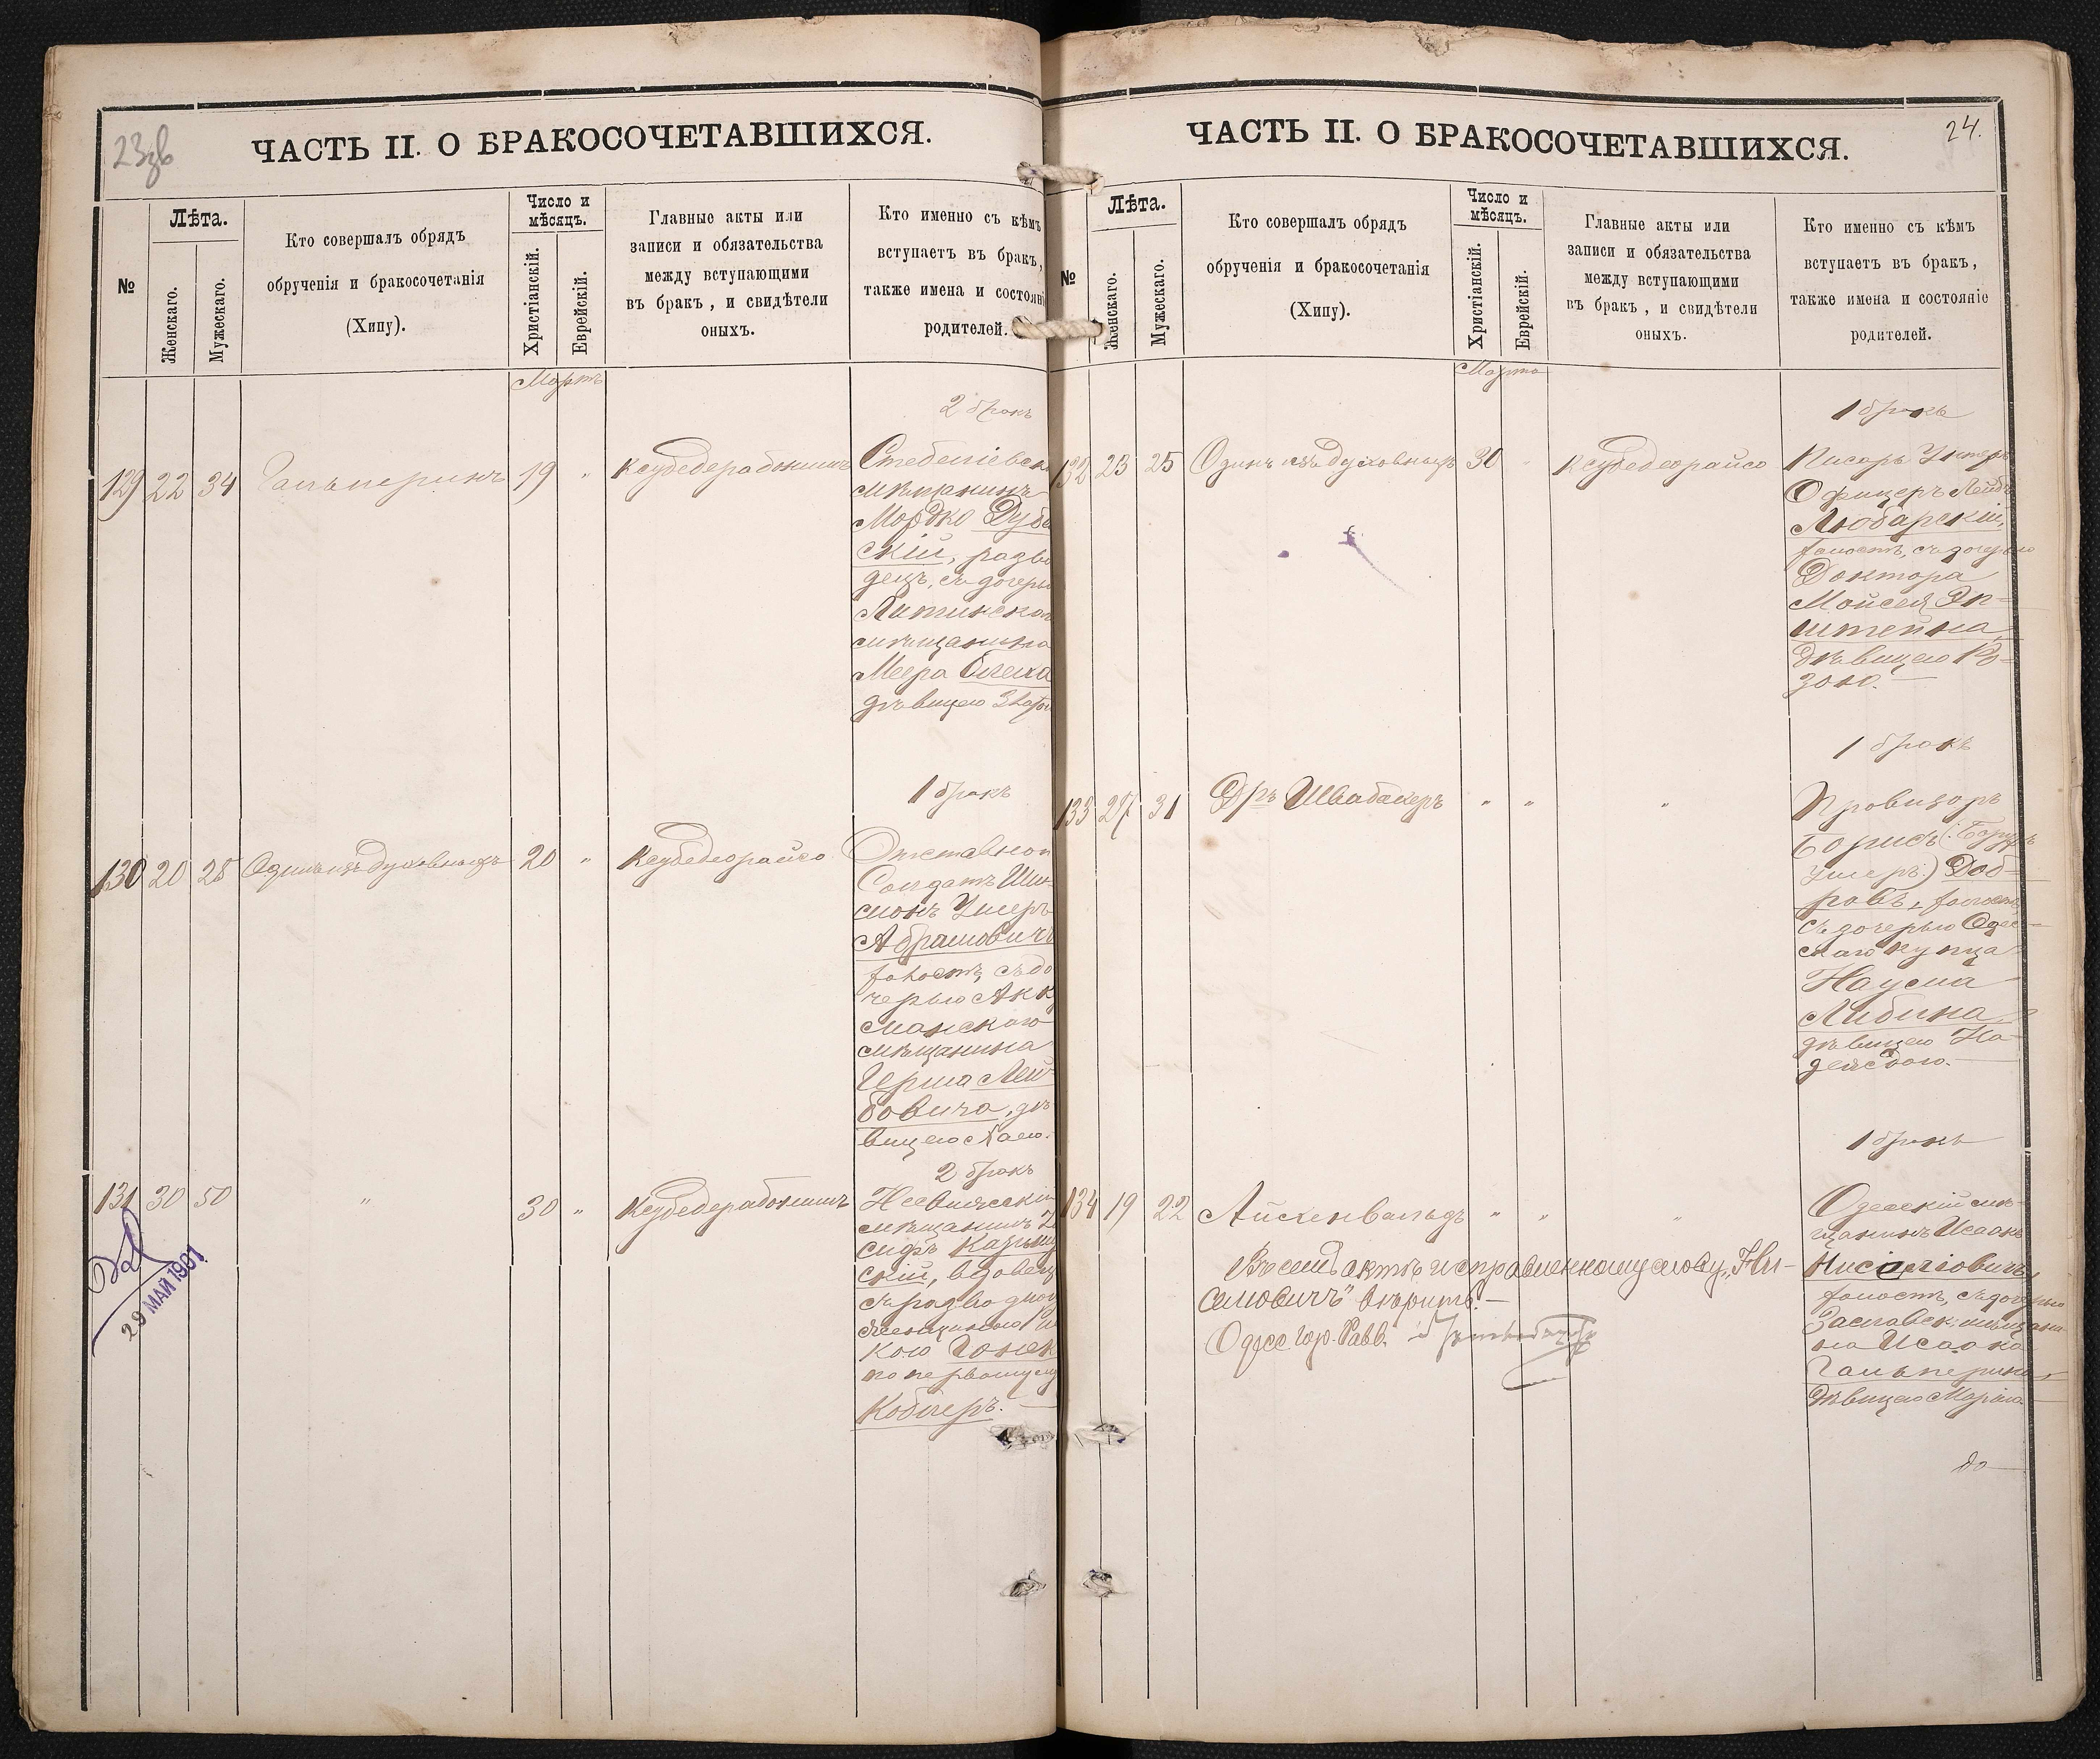 23зв
ЧАСТЬ II. О БРАКОСОЧЕТАВШИХСЯ.
№
Лѣта.
Женскаго.
Мужескаго.
Кто совершалъ обрядъ
обрученія и бракосочетанія
(Хипу).
Число и
мѣсяцъ.
Христіанскій.
Еврейскій.
Главные акты или
записи и обязательства
между вступающими
въ бракъ, и свидѣтели
оныхъ.
Кто именно съ кѣмъ
вступаетъ въ бракъ,
также имена и состояні
родителей.
Мартъ
2 бракъ
129 22 34 Гальперинъ 19 "
Стебліевск
мѣщанинъ
Мордко Дуб
скій, разво
децъ, съ дочерью
Литинско
мѣщанина
Меера
дѣвицею
1 бракъ
130 20 28 Одинъ изъ духовныхъ 20 " Ксубедеорайсо
Отставной
Солдатъ Ши-
монъ Ушеръ
Абрамовичъ
холостъ, съ до
черью Акк
манскаго
мѣщанина
Герша Лей-
бовича, дѣ-
вицею
2 бракъ
131 30 50 " 30 "
мѣщанинъ
скій, вдовецъ
съ разводною
женщиною
кою
по первому му
Коблеръ.
29 МАЙ 1901
ЧАСТЬ II. О БРАКОСОЧЕТАВШИХСЯ.
24.
№
Лѣта.
Женскаго.
Мужескаго.
Кто совершалъ обрядъ
обрученія и бракосочетанія
(Хипу).
Число и
мѣсяцъ.
Христіанскій.
Еврейскій.
Главные акты или
записи и обязательства
между вступающими
въ бракъ, и свидѣтели
оныхъ.
Кто именно съ кѣмъ
вступаетъ въ бракъ,
также имена и состояніе
родителей.
Марта
1 бракъ
132 23 25 Одинъ изъ духовныхъ 30 " Ксубедеорайсо
Писарь Унтеръ
Офицеръ Лейбъ
Любарскій,
холостъ, съ дочерью
Доктора
Мойсея Эп-
штейна,
дѣвицею Ро-
зою.
1 бракъ
133 27 31 Дръ Швабахеръ " " "
Провизоръ
Борисъ (Борухъ
Ушеръ) Доб-
ровъ, холостъ
съ дочерью Одес-
скаго купца
Наума
Либина,
дѣвицею На-
деждою.
1 бракъ
134 19 22 Айсхенвальдъ " " "
Одесскій мѣ-
щанинъ Исаакъ
Нисіоловичъ,
холостъ, съ дочерью
Заславск. мѣщани-
на Исаака
Гальперина,
дѣвицею Маріею
Въ семъ актѣ исправленному слову "Ни-
симовичъ" вѣрить.
Одесс гор. Равв.